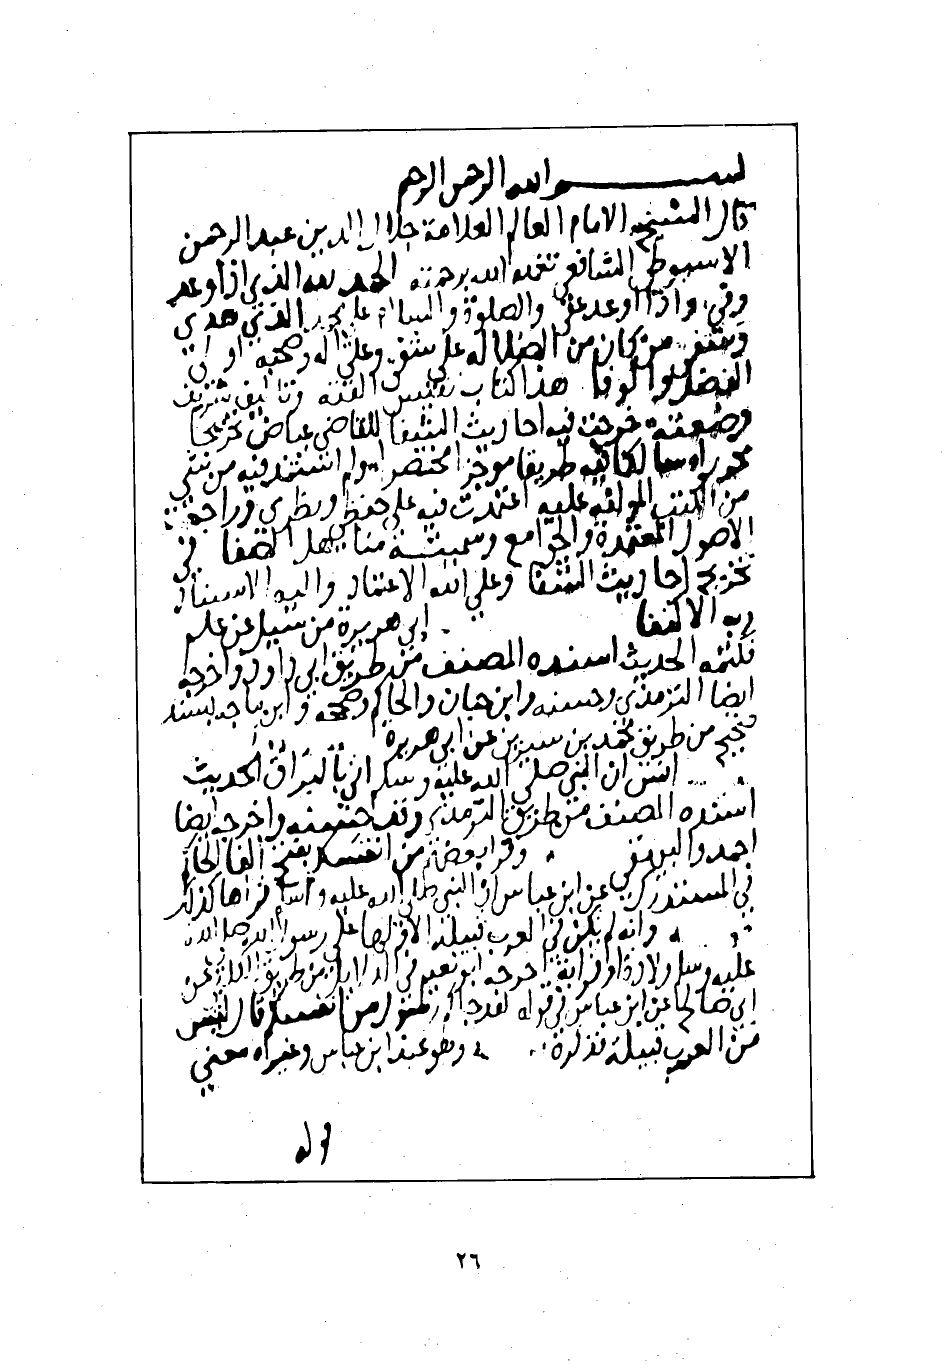 بسم الله الرحمن الرحيم
قال الشيخ الامام العالم العلامة جلال الدين عبد الرحمن
الاسيوطي الشافعي تغمده الله برحمته الحمد لله الذي اذا وعد
وفي واذا اوعد عفى والصلوة والسلام على محمد الذي هدى
من كان من الضلالة على شفى وعلى اله وصحبه اولى
الفضل والوفا هذا كتاب نفيس وتاليف شريف
وضعته خرجت فيه احاديث الشفا للقاضي عياض تخريجا
محررا وسالكا فيه طريقا موجزا مختصرا ولم استمد فيه من شي
من الكتب المولفه عليه اعتمدت فيه على حفظي ونظري ومراجعة
الاصول المعتمدة والجوامع وسميته مناهل الصفا في
تخريج احاديث الشفا وعلى الله الاعتماد واليه الاستناد
وبه الاكتفا ابي هريرة من سيل عن علم
فكتمه الحديث اسنده المصنف من طريق ابي داود واخرجه
ايضا الترمذي وحسنه وابن حبان والحاكم وصححه وابن ماجه بسند
صحيح من طريق محمد بن سيرين عن ابي هريرة
انس ان النبي صلى الله عليه وسلم اتي بالبراق الحديث
اسنده المصنف من طريق الترمذي واخرجه ايضا
احمد والبيهقي وقرا بعضهم من انفسكم بفتح الفا الحاكم
في المستدرك عن ابن عباس ان النبي صلى الله عليه وسلم قراها كذلك
وانه لم يكن في العرب قبيلة الا ولها على رسول الله صلى الله
عليه وسلم ولادة او قرابة اخرجه ابو نعيم في الدلايل من طريق عن
ابي صالح عن ابن عباس في قوله لقد جاكم رسول من انفسكم قال ليس
من العرب قبيلة فذكره وهو عند ابن عباس وغيره معني
قوله
٢٦